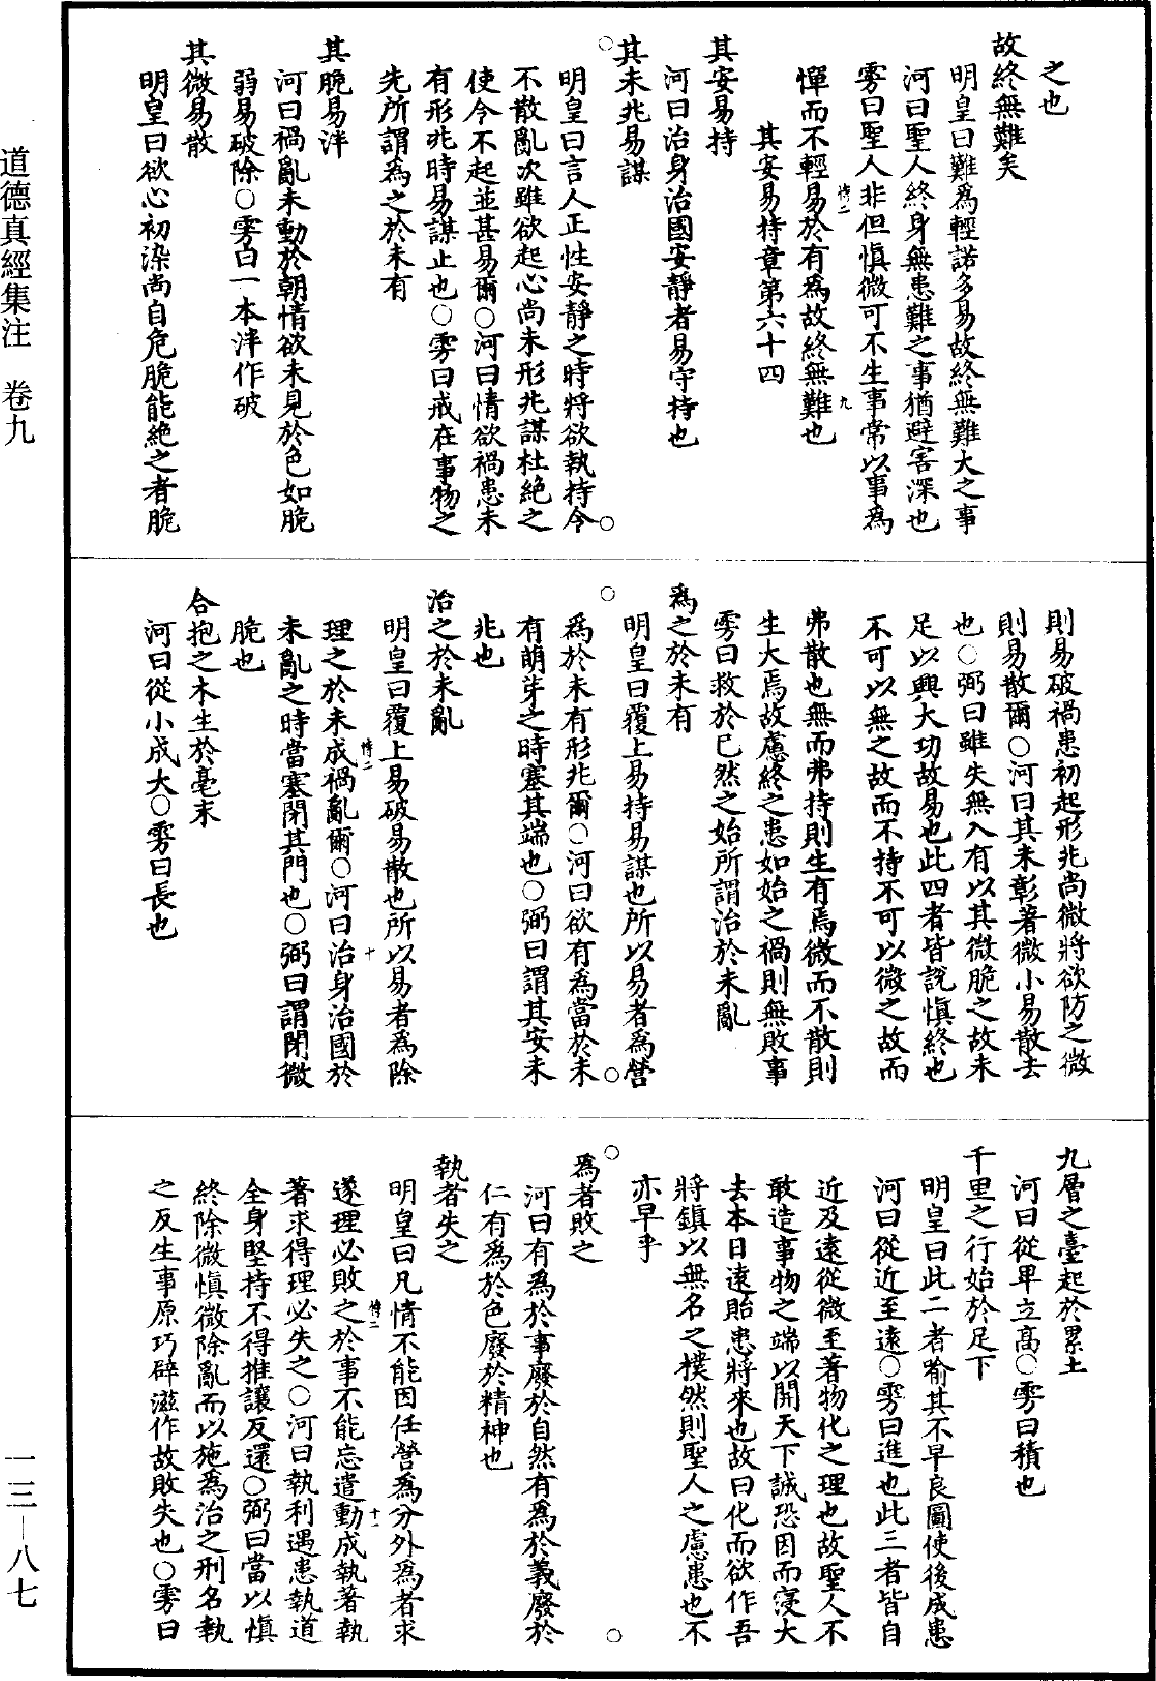 之也
故終無難矣
明皇曰難爲輕諾多易故終無難大之事
河曰聖人終身無患難之事猶避害深也
雱曰聖人非但慎微可不生事常以事爲
憚而不輕易於有爲故終無難也
其安易持章第六十四
其安易持
河曰治身治國安靜者易守持也
其未兆易謀
明皇曰言人正性安靜之時將欲執持令
不散亂次雖欲起心尚未形兆謀杜絕之
使令不起並甚易爾○河曰情欲禍患未
有形兆時易謀止也○雱曰戒在事物之
先所謂爲之於未有
其脆易泮
河曰禍亂未動於朝情欲未見於色如脆
弱易破除○雱曰一本泮作破
其微易散
明皇曰欲心初染尚自危脆能絕之者脆
則易破禍患初起形兆尚微將欲防之微
則易散爾○河曰其未彰著微小易散去
也○弼曰雖失無入有以其微脆之故未
足以興大功故易也此四者皆說慎終也
不可以無之故而不持不可以微之故而
弗散也無而弗持則生有焉微而不散則
生大焉故慮終之患如始之禍則無敗事
雱曰救於已然之始所謂治於未亂
爲之於未有
明皇曰覆上易持易謀也所以易者爲營
爲於未有形兆爾○河曰欲有爲當於未
有萌芽之時塞其端也○弼曰謂其安未
兆也
治之於未亂
明皇曰覆上易破易散也所以易者爲除
理之於未成禍亂爾○河曰治身治國於
未亂之時當塞閉其門也○弼曰謂閉微
脆也
合抱之木生於毫末
河曰從小成大○雱曰長也
九層之臺起於累土
河曰從卑立高○雱曰積也
千里之行始於足下
明皇曰此二者喻其不早良圖使後成患
河曰從近至遠○雱曰進也此三者皆自
近及遠從微至著物化之理也故聖人不
敢造事物之端以開天下誠恐因而寖大
去本日遠貽患將來也故曰化而欲作吾
將鎮以無名之樸然則聖人之慮患也不
亦早乎
爲者敗之
河曰有爲於事廢於自然有爲於義廢於
仁有爲於色廢於精神也
執者失之
明皇曰凡情不能因任營爲分外爲者求
遂理必敗之於事不能忘遣動成執著執
著求得理必失之○河曰執利遇患執道
全身堅持不得推讓反還○弼曰當以慎
終除微慎微除亂而以施爲治之刑名執
之反生事原巧辟滋作故敗失也○雱曰
道德真經集注　卷九
一三－八七